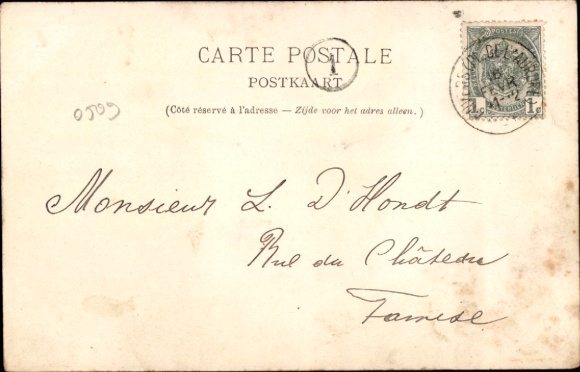 CARTE POSTALE
POSTKAART
1
(Côté réservé à l'adresse — Zijde voor het adres alleen.)
POSTES
1c 1c
Monsieur L. D'Hondt
Rue du Château
Tamise